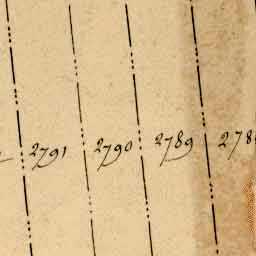 2791 2790 2789